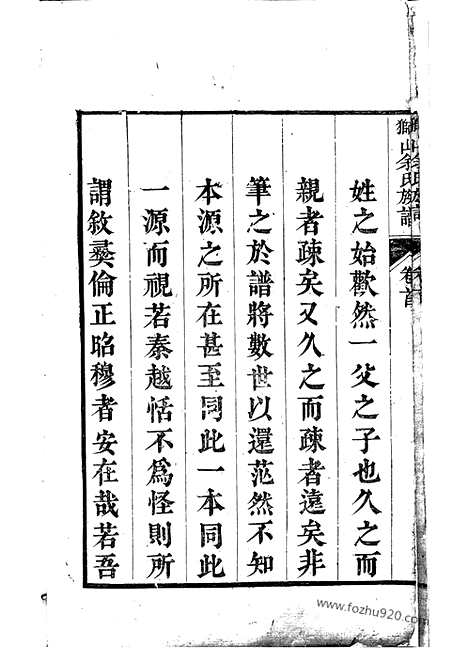 獅山余氏族譜 卷首
姓之始歡然一父之子也久之而
親者疎矣又久之而疎者遠矣非
筆之於譜將數世以還茫然不知
本源之所在甚至同此一本同此
一源而視若秦越恬不為怪則所
謂敘彝倫正昭穆者安在哉若吾
www.fozhu920.com